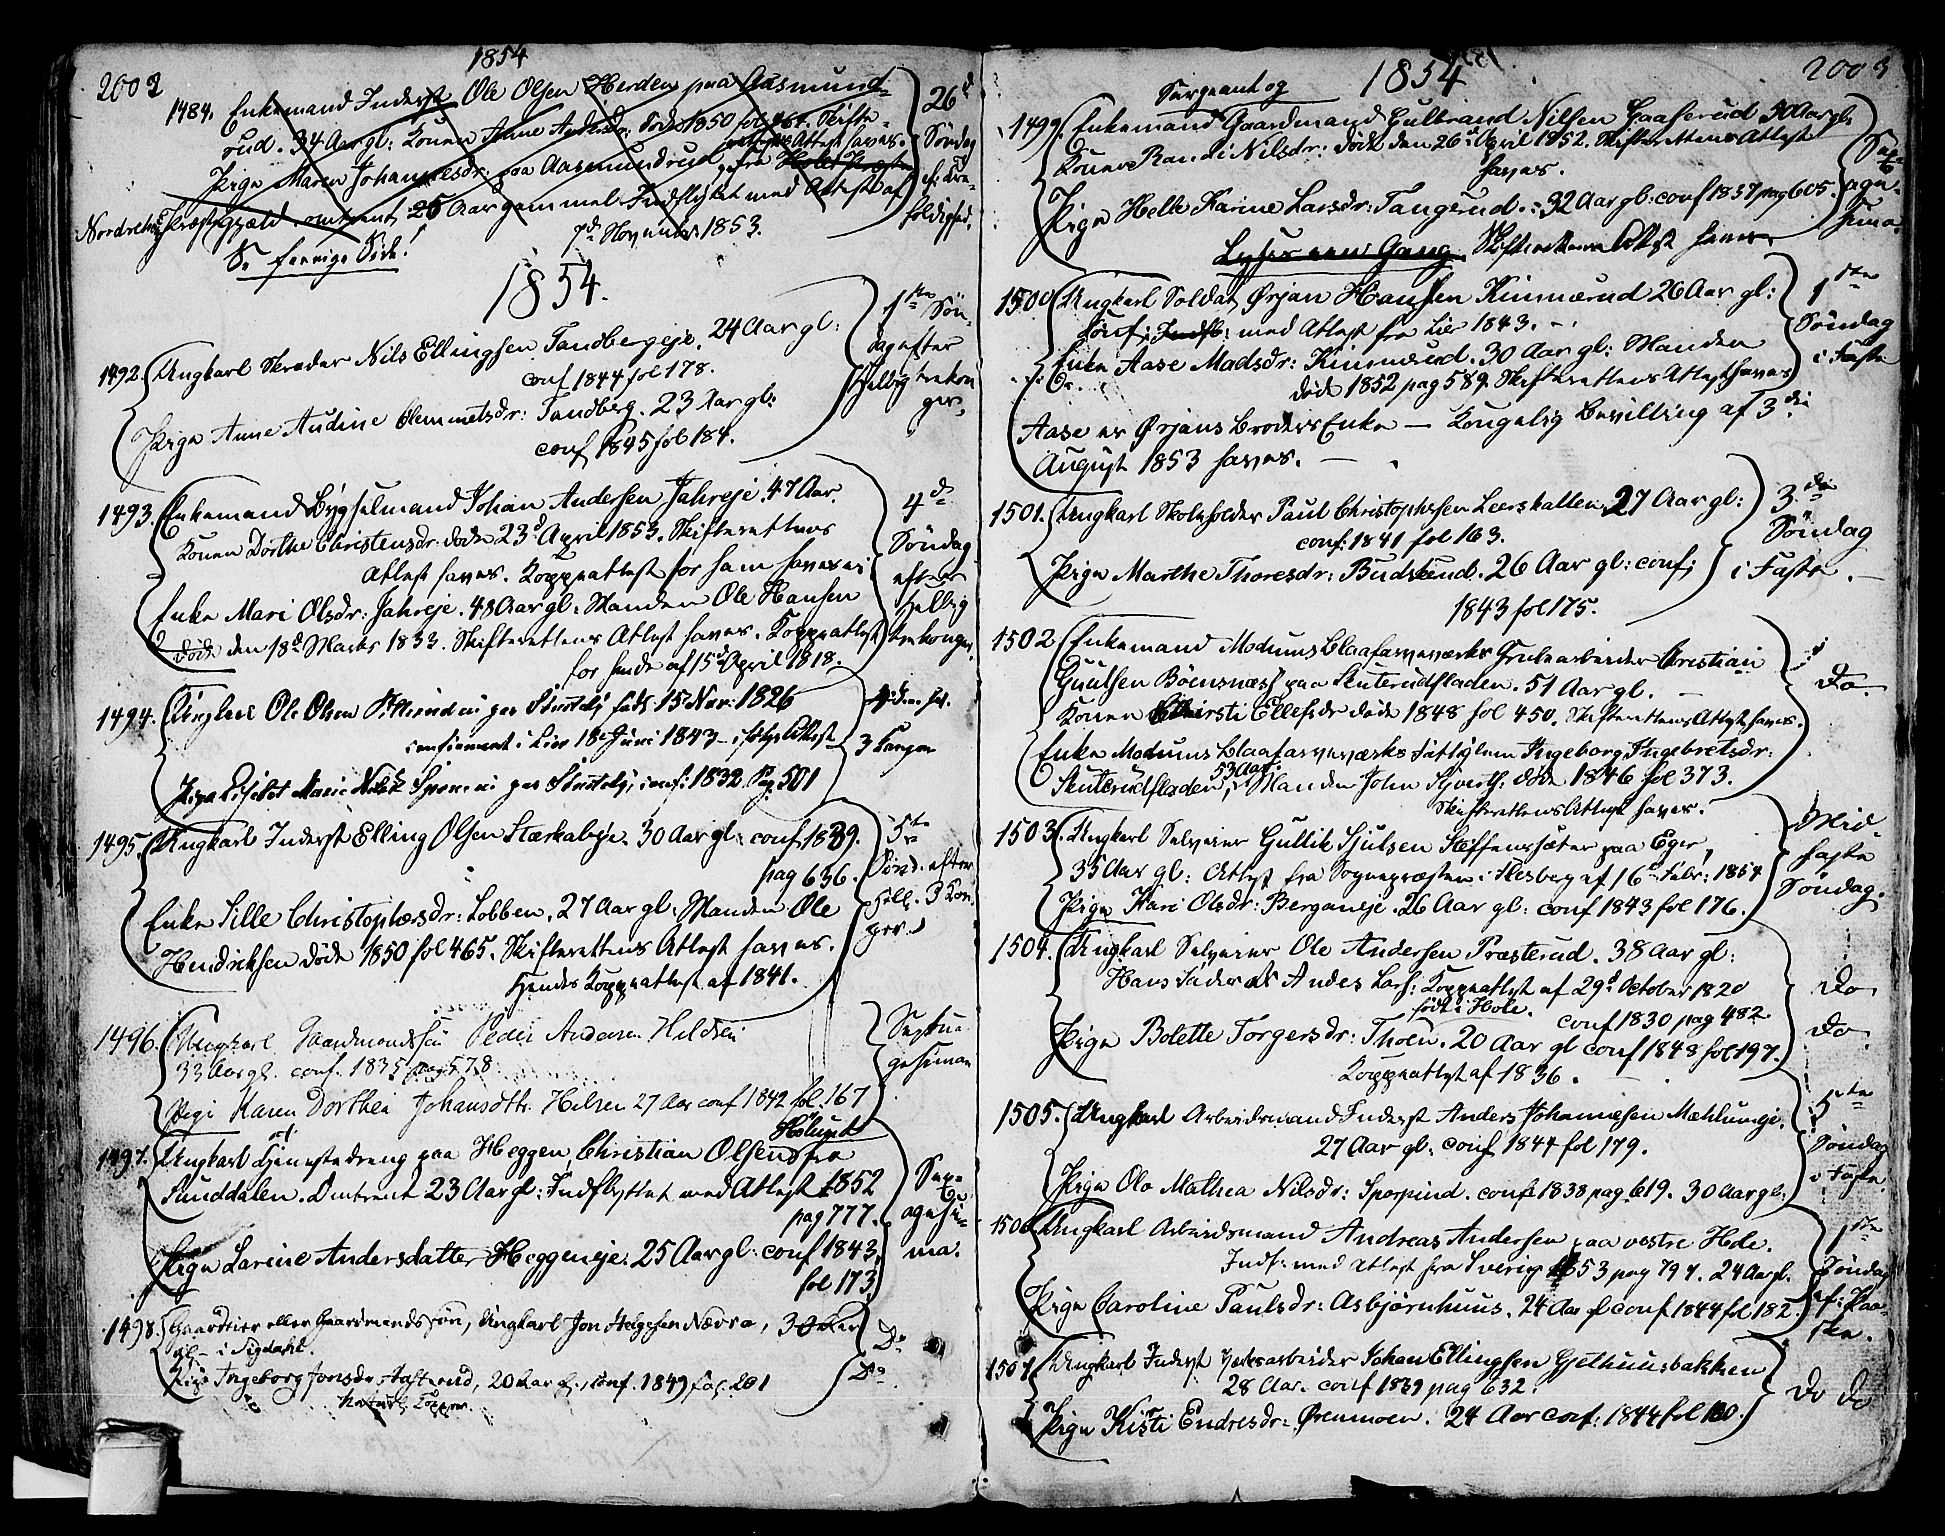 1854
2002
1484. Enkemand Inderst Ole Olsen Herden paa Aasmund-
rud. 34 Aar gl: Konen Anne Andersdr: døde 1850 fol 461. Skifte-
rettens Attest haves.
Pige Maren Johannesdr: paa Aasmundrud, fra
Nordrehoug Præstegjæld. omtrent 25 Aar gammel Indflyttet med Attest af
7d November 1853.
26d Søndag ef: Tre-
foldighed.
Se forrige Side!
1854.
1492. Ungkarl Skræder Nils Ellingsen Tandbergeje. 24 Aar gl:
conf 1844 fol 178.
Pige Anne Audine Clemmetsdr: Tandberg. 23 Aar gl:
conf 1845 fol 184.
1ste Søn-
dag efter
Hellig trekon
ger.
1493. Enkemand Bygselmand Johan Andersen Jahreje. 47 Aar.
Konen Dorthe Christensdr: døde 23d April 1853. Skifterettens
Attest haves. Koppeattest for ham haves ei
Enke Mari Olsdr: Jahreje. 48 Aar gl: Manden Ole Hansen
døde den 18d Marts 1833. Skifterettens Attest haves. Koppeattest
for hende af 15d April 1818.
4d
Søndag
efter
Hellig
trekonger.
1494. Ungkarl Ole Olsen født 15 Nov: 1826
confirmeret i Lier 18 Juni 1843 ifølge Attest
Pige Lisebet Marie conf: 1832. Pg. 501
3 Konger
1495. Ungkarl Inderst Elling Olsen Stærkebye. 30 Aar gl: conf 1839.
pag 636.
Enke Sille Christophersdr: Lobben. 27 Aar gl: Manden Ole
Hendriksen døde 1850 fol 465. Skifterettens Attest haves.
Hendes Koppeattest af 1841.
5te
Sønd. efter
Hell. 3 Kon
ger.
1496. Ungkarl Gaardmandssøn Peder Andersen Hilsen
33 Aar gl. conf. 1835 pag 578
Pige Karen Dorthea Johansdtr. Hilsen 27 Aar conf 1842 fol. 167
Septua-
gesiman
1497. Ungkarl Tjenestedreng paa Heggen, Christian Olsen fra
Sunddalen. Omtrent 23 Aar gl: Indflyttet med Attest 1852
pag 777.
Pige Larine Andersdatter Heggeneje. 25 Aar gl: conf 1843.
fol 173.
Sex-
agesi-
ma.
1498. Gaardeier eller Gaardmandssøn, Ungkarl Jon Helgesen Nævra, 30 Aar
gl. i Sigdahl.
Pige Ingeborg Jonsdr: 20 Aar gl., conf. 1849 fol. 201
Do
Do
1854
2003
Sergeant og
1499. Enkemand Gaardmand Gulbrand Nilsen Gaaserud 50 Aar gl:
Konen Randi Nilsdr: døde den 26d April 1852. Skifterettens Attest
haves.
Pige Helle Karine Larsdr: Tangerud. 32 Aar gl: conf 1837 pag 605.
Lyses een Gang. Skifterettens Attest haves.
Sex-
age-
sima.
1500. Ungkarl Soldat Ørjan Hansen Kinnerud 26 Aar gl:
conf: Indfl: med Attest fra Lier 1843.
Enke Aase Madsdr: Kinnerud. 30 Aar gl: Manden
døde 1852 pag 589. Skifterettens Attest haves.
Aase er Ørjans Broders Enke — Kongelig Bevilling af 3die
August 1853 haves. —
1ste
Søndag
i Faste
1501. Ungkarl Skoleholder Paul Christophersen Leerskallen. 27 Aar gl:
conf: 1841 fol 163.
Pige Marthe Thoresdr: Budskud. 26 Aar gl: conf;
1843 fol 175.
3die
Søndag
i Faste. —
1502 Enkemand Modums Blaafarveværks Grubearbeider Christian
Guulsen Böensnæss paa Skuterudfladen. 51 Aar gl.
Konen Kirsti Ellefsdr døde 1848 fol 450. Skifterettens Attest haves.
Enke Modums Blaafarveværks Fattiglem Ingeborg Ingebretsdr:
Skuterudfladen, 53 Aar. Manden John Syverts: døde 1846 fol 373.
Skifterettens Attest haves.
Do.
1503. Ungkarl Selveier Gullik Sjulsen Steffenssæter paa Eger,
35 Aar gl: Attest fra Sognepræsten i Flesberg af 16de Febr: 1854
Pige Kari Olsdr: Berganeje. 26 Aar gl: conf 1843 fol 176.
Mid-
faste
Søndag.
1504. Ungkarl Selveier Ole Andersen Præsterud. 38 Aar gl:
Hans Fader Anders Lars: Koppeattest af 29d October 1820
født i Hole. conf 1830 pag 482
Pige Bolette Torgersdr: Thoen. 20 Aar gl conf 1848 fol 197.
Koppeattest af 1836.
Do.
Do.
1505. Ungkarl Arbeidsmand Inderst Anders Johannesen Mæhlumeje.
27 Aar gl: conf 1844 fol 179.
Pige Olo Mathea Nilsdr: Sporpind. conf: 1838 pag. 619. 30 Aar gl:
5te
Søndag
i Faste.
1506 Ungkarl Arbeidsmand Andreas Andersen paa vestre Hole.
Indf: med Attest fra Sverig 1853 pag 797. 24 Aar gl.
Pige Caroline Paulsdr: Asbjørnhuus. 24 Aar gl conf 1844 fol 182
1ste
Søndag
ef: Paa-
ske.
1507 Ungkarl Inderst Johan Ellingsen Gjethuusbakken
28 Aar. conf 1839 pag 632.
Pige Kisti Endresdr: Ørenmoen. 24 Aar conf: 1844 fol 180.
Do Do